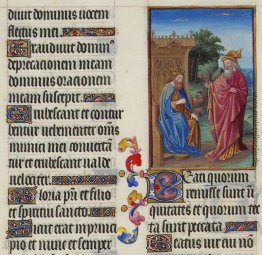 diuit dominus uocem
fletus mei.
Exaudiuit dominus
deprecationem meam
dominus orationem
meam suscepit.
Erubescant et contur
bentur uehementer omnes
inimici mei conuerta
tur et erubescant ualde
uelociter.
Gloria patri et filio
et spiritui sancto.
Sicut erat in princi
pio et nunc et semper
Beati quorum
remisse sunt in
iquitates et quorum tec
ta sunt peccata.
Beatus uir cui non